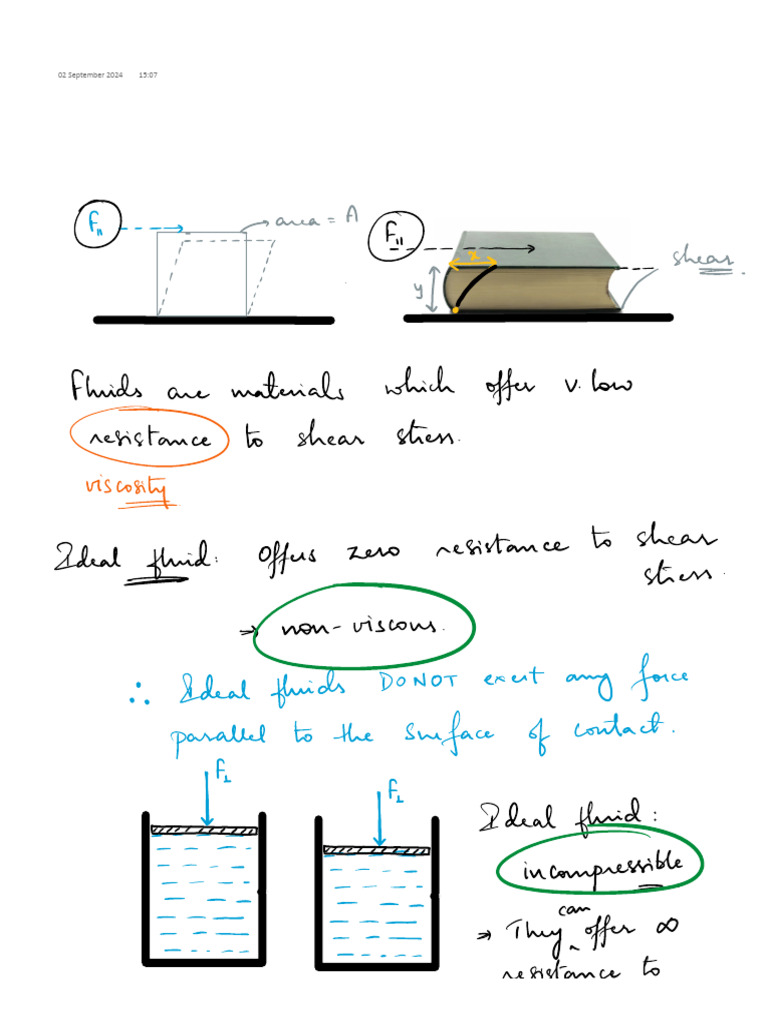 02 September 2024 15:07
F||
area = A
F||
x
y
shear
Fluids are materials which offer v. low
resistance to shear stress.
viscosity
Ideal fluid: Offers zero resistance to shear
stress.
⇒ non-viscous.
∴ Ideal fluids DO NOT exert any force
parallel to the surface of contact.
F⊥
F⊥
Ideal fluid:
incompressible
can
⇒ They ^ offer ∞
resistance to